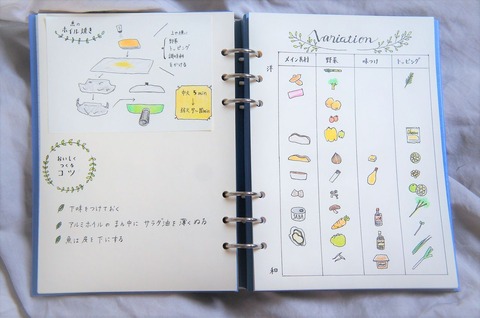 魚の
ホイル焼き
上に魚
野菜
トッピング
調味料
をかける
中火 5min
おいしく
つくる
コツ
下味をつけておく
アルミホイルのまん中に サラダ油を薄くぬる
魚は皮を下にする
Variation
メイン食材
野菜
味つけ
トッピング
洋
和